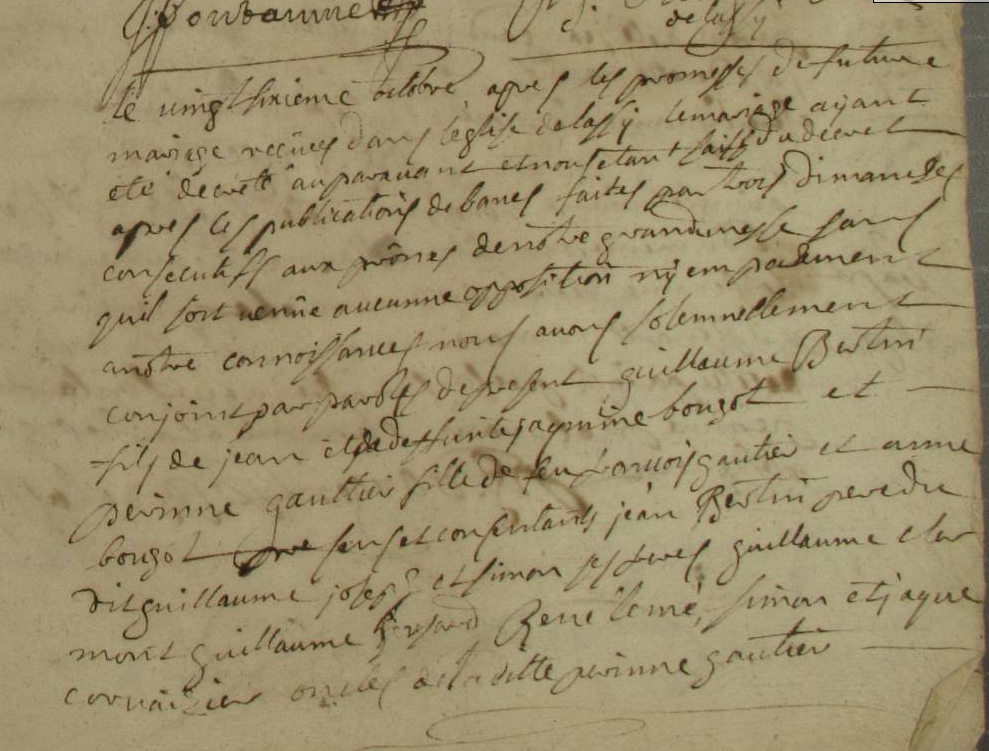 delassy
le vingt sixieme octobre apres les promesses de future
mariage reçües dans leglise delassÿ lemariage aÿant
eté decreté auparavant et nous etant saisy du decret
apres les publications de banes faites par trois dimanches
consecutifs aux prônes de nôtre grandmesse sans
quil soit venüe aucunne opposition nÿ empaichement
anôtre connoissances nous avons solemnellement
conjoint par parolles depresent guillaume Bertin
fils de jean et de deffunte jaquinne bougot et
perinne gaultier fille de feu francois gautier et anne
bougot presents et consentants jean Bertin pere du
dit guillaume joseph et simon ses freres guillaume cler
mont guillaume René lemé, simon et jaque
corvaizier oncles de laditte perinne gautier